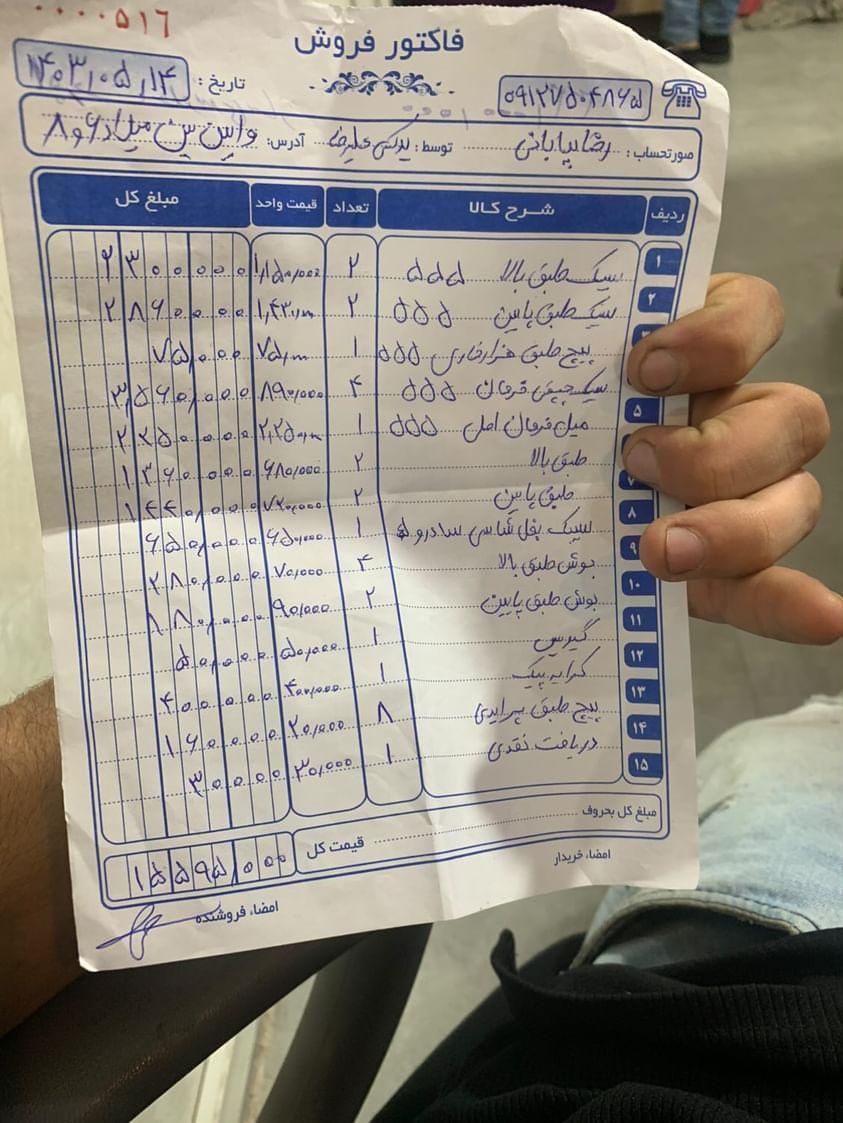 ۰۰۰۰۵۱۶
فاکتور فروش
تاریخ : ۱۴۰۳,۰۵,۱۴
۰۹۱۲۷۵۰۴۸۶۵
صورتحساب : رضا بیابانی توسط : یدکی علیرضا آدرس: میلاد ۶ و ۸
ردیف شرح کالا تعداد قیمت واحد مبلغ کل
۱ سیبک طبق بالا ۵۵۵ ۲ ۱,۱۵۰,۰۰۰ ۲۳۰۰۰۰۰
۲ سیبک طبق پایین ۵۵۵ ۲ ۱,۴۳۰,۰۰۰ ۲۸۶۰۰۰۰
پیچ طبق هزارخاری ۵۵۵ ۱ ۷۵,۰۰۰ ۷۵,۰۰۰
سیبک چپقی فرمان ۵۵۵ ۴ ۸۹۰,۰۰۰ ۳,۵۶۰,۰۰۰
۵ میل فرمان اصلی ۵۵۵ ۱ ۲,۲۵۰,۰۰۰ ۲۲۵۰۰۰۰
طبق بالا ۲ ۶۸۰,۰۰۰ ۱۳۶۰۰۰۰
۷ طبق پایین ۲ ۷۲۰,۰۰۰ ۱۴۴۰,۰۰۰
۸ سیبک بغل شاسی سادرو ۱ ۶۵۰,۰۰۰ ۶۵۰,۰۰۰
۹ بوش طبق بالا ۴ ۷۰,۰۰۰ ۲۸۰,۰۰۰
۱۰ بوش طبق پایین ۲ ۹۰,۰۰۰ ۱۸۰,۰۰۰
۱۱ گیریس ۱ ۵۰,۰۰۰ ۵۰,۰۰۰
۱۲ کرایه پیک ۱ ۴۰۰,۰۰۰ ۴۰۰۰۰۰
۱۳ پیچ طبق پرایدی ۸ ۲۰,۰۰۰ ۱۶۰۰۰۰
۱۴ دریافت نقدی ۱ ۳۰,۰۰۰ ۳۰۰۰۰
۱۵
مبلغ کل بحروف
قیمت کل ۱۵۵۹۵,۰۰۰
امضاء خریدار
امضاء فروشنده